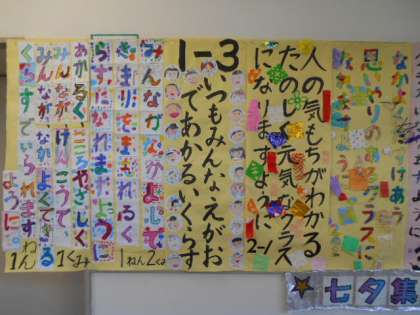 思いやりのあるクラスに
人の気もちがわかる
たのしく元気なクラス
になりますように 2-1
1-3
いつもみんなえがお
であかるいくらす
みんながなかよしで、
きまりをまもれるく
らすになれますように
1ねん2くみ
あかるく、こころやさしく
みんなが、けんこうで、
みんなが、なかよくできる
くらすでいられます
ように。
1ねん
1くみ
七夕集